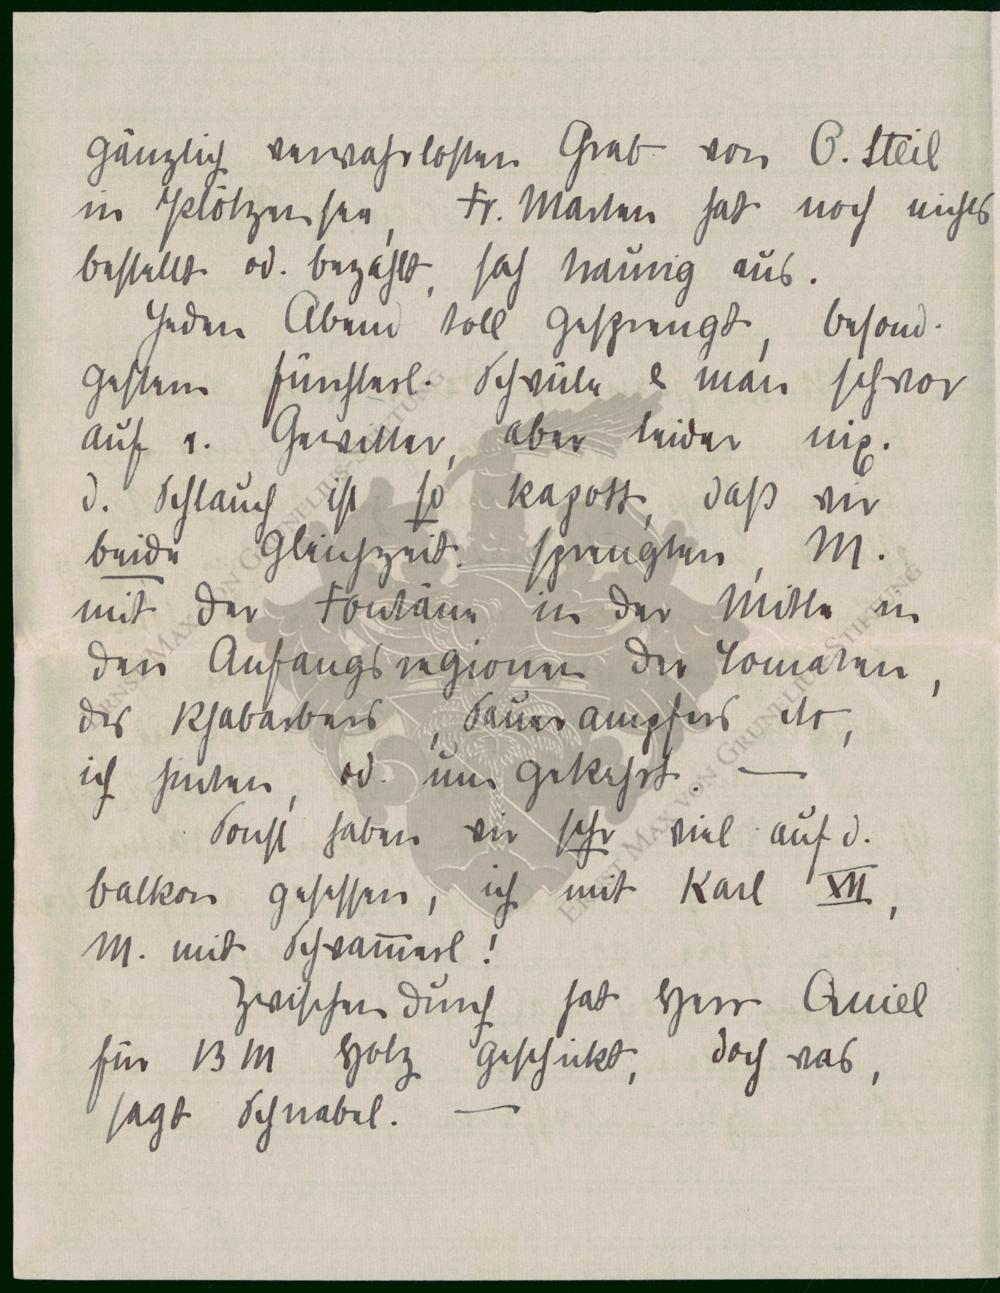 gänzlich verwahrlosten Grab von O. Steil
in Plötzensee, Fr. Marten hat noch nichts
bestellt od. bezahlt, sah traurig aus.
Jeden Abend toll gesprengt, besond.
gestern fürchterl. Schwüle & man schwor
auf 1. Gewitter, aber leider nix.
d. Schlauch ist so kaputt, daß wir
beide gleichzeit. sprengten, M.
mit der Fontäne in der Mitte in
den Anfangsregionen der Tomaten,
des Rhabarbers, Sauerampfers etc,
ich hinten, od. umgekehrt. —
Sonst haben wir sehr viel auf d.
balkon gesessen, ich mit Karl XII,
M. mit Schwam̅erl!
Zwischendurch hat Herr
für BM Holz geschickt, doch was,
sagt Schnabel. —
ERNST MAX VON GRUNELIUS-STIFTUNG
ERNST MAX VON GRUNELIUS-STIFTUNG